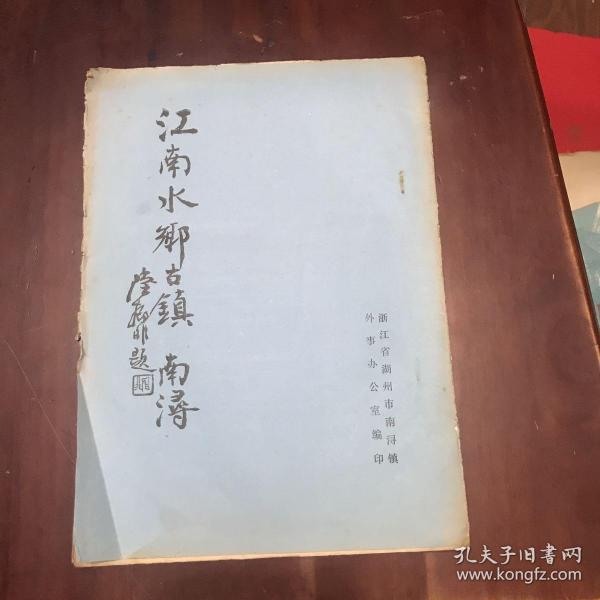 江南水鄉古鎮 南潯
题
浙江省湖州市南浔镇
外事办公室编印
孔夫子旧书网
www.kongfz.com